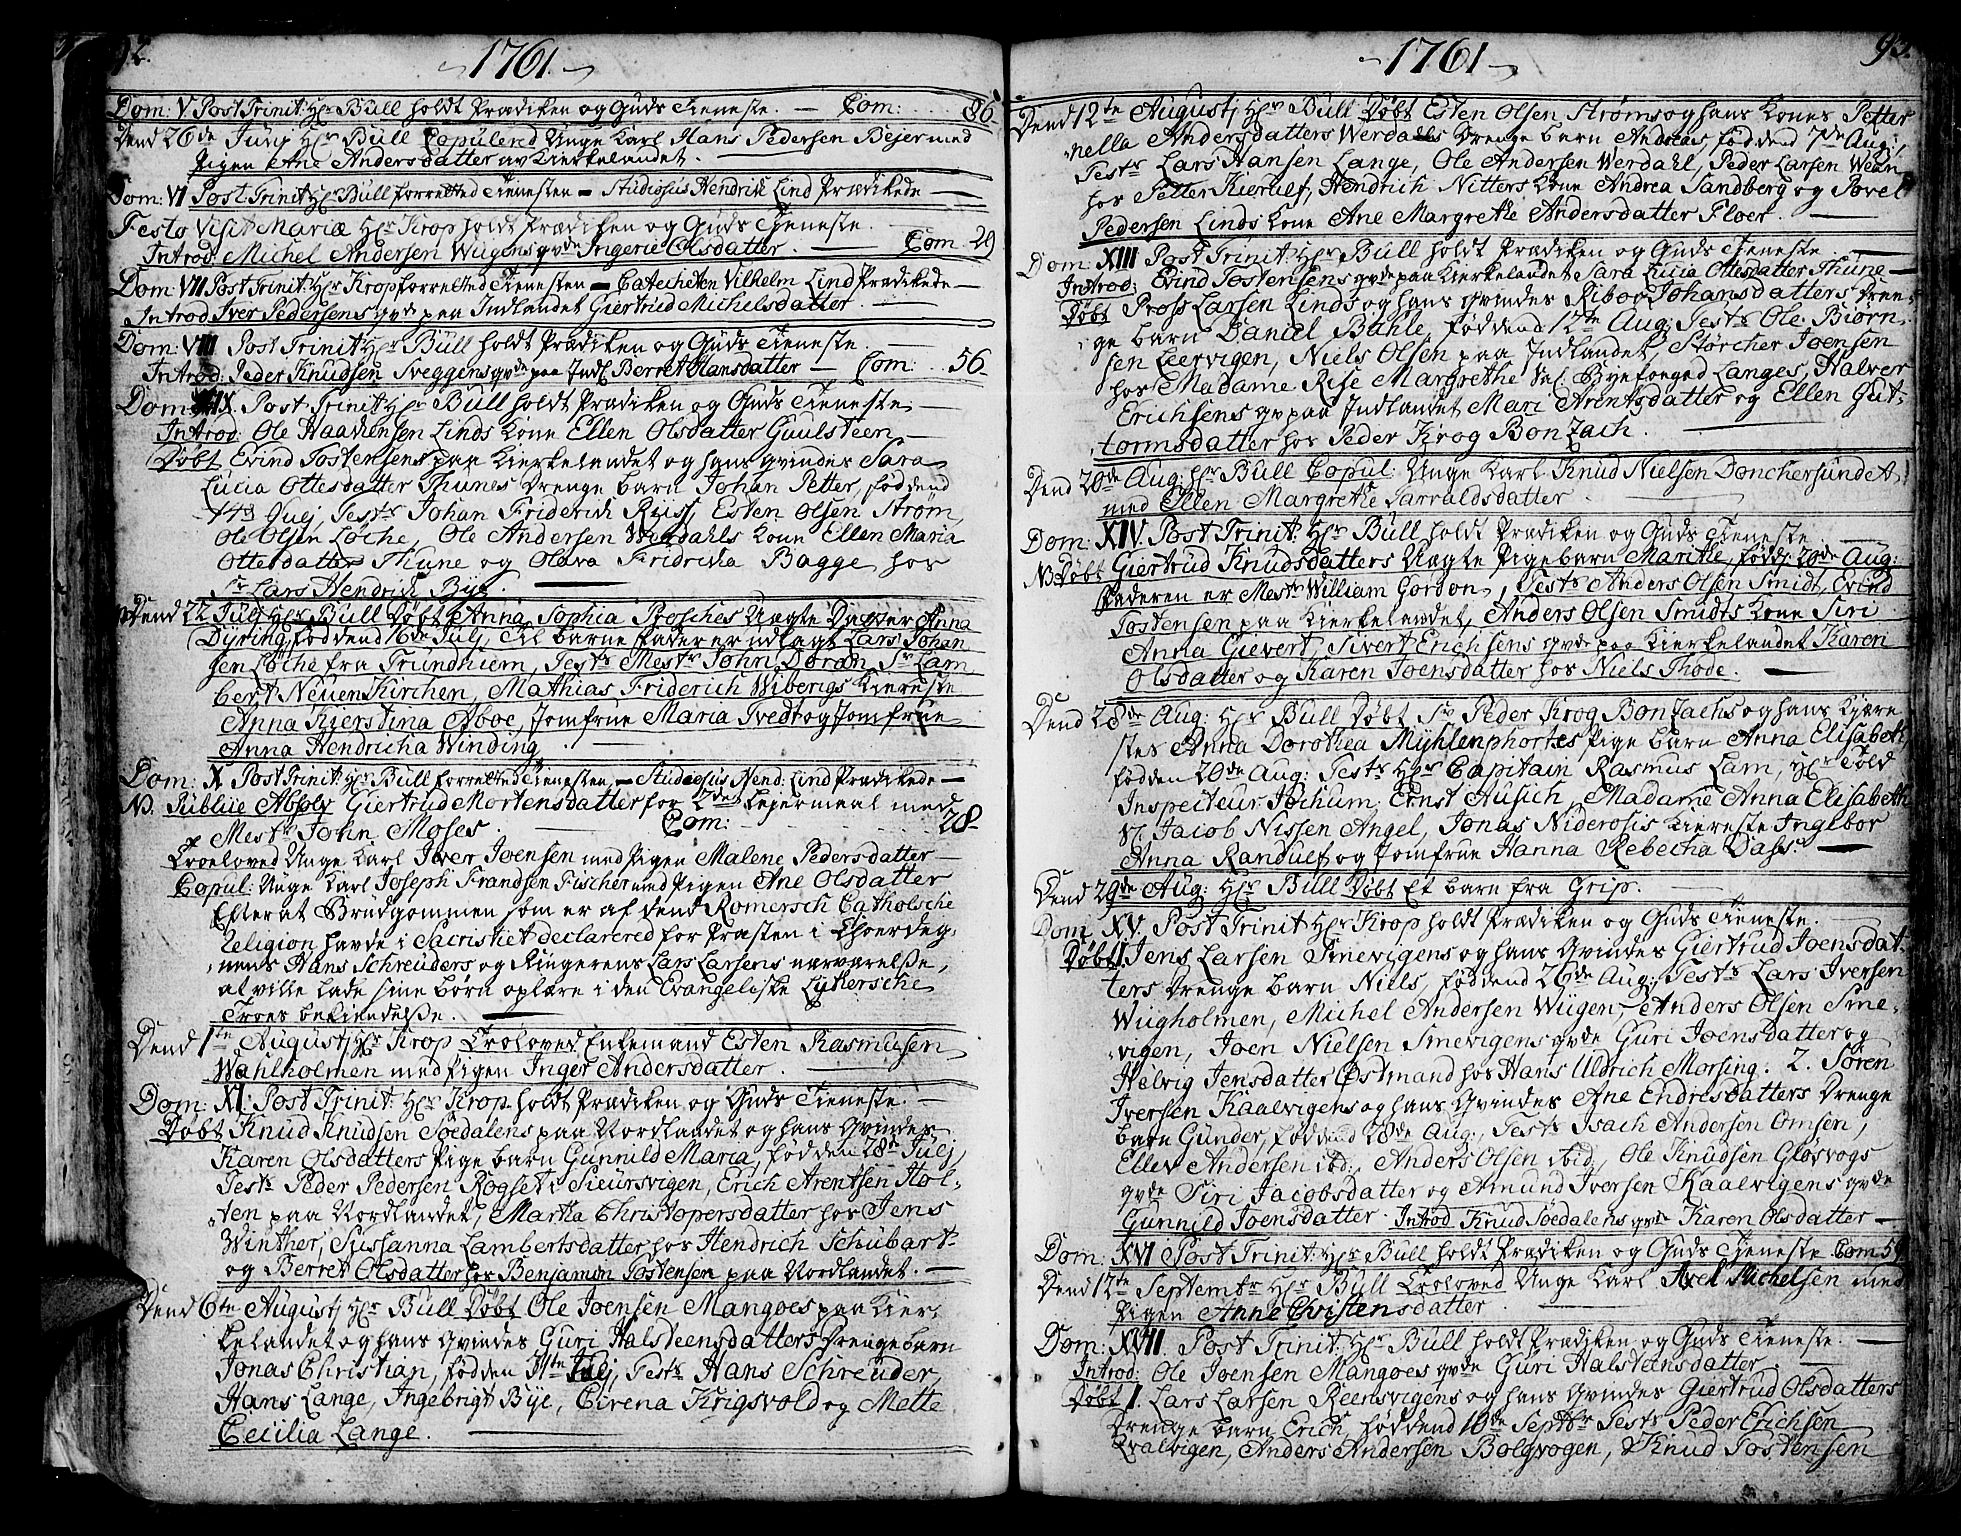 92.
1761.
Dom: V. Post Trinit: Hr Bull holdt Prædiken og Guds Tieneste. — Com: 86
Dend 26de Junij Hr Bull Copulerd Unge Karl Hans Pedersen Bejer med
Pigen Ane Andersdatter av Kierkelandet.
Dom: VI Post Trinit: Hr Bull forretted Tienesten — Studiosus Hendrik Lind Prædikede —
Festo Visit Mariæ Hr Krop holdt Prædiken og Guds Tieneste.
Introd: Michel Andersen Wugens qvde Ingerie Olsdatter. — Com. 29
Dom: VII Post Trinit: Hr Krop forretted Tienesten — Catecheten Vilhelm Lind Prædikede —
Introd Iver Pedersens qvde paa Indlandet Giertrud Michelsdatter.
Dom: VIII Post Trinit Hr Bull holdt Prædiken og Guds Tieneste.
Introd: Peder Knudsen Sveggens qvde paa Indl Berret Hansdatter — Com: .. 56
Dom: IX. Post Trinit: Hr Bull holdt Prædiken og Guds Tieneste
Introd: Ole Haagensen Linds Kone Ellen Olsdatter Guulsteen
Døbt Evind Jostensens paa Kierkelandet og hans qvindes Sara
Lucia Ottesdatter Thunes Drenge barn Johan Petter, fød dend
Julj, Testr Johan Friderich Russ, Esten Olsen Strøm,
Ole Olsen Løche, Ole Andersen Werdahls Kone Ellen Maria
Ottesdatter Thune og Olava Fridricha Bagge hos
Sr Lars Hendrich Bye.
Dend 22 Julj Hr Bull Døbt Anna Sophia Brosches Uægte Datter Anna
Dyring, fød dend 16de Julj, til barne fader er udlagt Lars Johan
sen Løche fra Trundhiem, Tests Mestr John Doran, Sr Lam
bert Neuen Kirchen, Mathias Friderich Wibergs Kiereste
Anna Kierstina Aboe, Jomfrue Maria Tvedt og Jomfrue
Anna Hendricha Winding
Dom: X Post Trinit: Hr Bull forretted Tienesten, — Studiosus Hend: Lind Prædikede —
N. Publice Absolv Giertrud Mortensdatter for 2den Lejermaal med
Mestr John Moses. Com: 28-
Troeloved Unge Karl Iver Joensen med Pigen Malene Pedersdatter —
Copul: Unge Karl Joseph Frandsen Fischer med Pigen Ane Olsdatter
Efter at Brudgommen som er af dend Romersch Catholsche
Religion havde i Sacristiet declarered for Præsten i Choerdeg-
nens Hans Schreuders og Ringerens Lars Larsens nærværelse,
at ville lade sine børn oplære i den Evangeliske Lutersche
Troes bekiendelsse.
Dend 1te Augustj Hr Krop Troloved Enkemand Esten Rasmusen
Wahlholmen med Pigen Inger Andersdatter.
Dom: XI: Post Trinit: Hr Krop holdt Prædiken og Guds Tieneste.
Døbt Knud Knudsen Soedalens paa Nordlandet og hans Qvindes
Karen Olsdatters Pige barn Gunnild Maria, fød den 28de Julj,
Tests Peder Pedersen Rogset i Sieursvigen, Erich Arentsen Hol-
ten paa Nordlandet, Martha Christophersdatter hos Jens
Winther, Sussanna Lambertsdatter hos Hendrich Schubart
og Berret Olsdatter hos Benjamin Jostensen paa Nordlandet.
Dend 6te Augustj Hr Bull Døbt Ole Joensen Mangoes paa Kier
kelandet og hans Qvindes Guri Halsteensdatters Drenge barn
Jonas Christian, fød den 31te Julj, Tests Hans Schreuder,
Hans Lange, Ingebrigt Bye, Cirena Krigsvold og Mette
Cecilia Lange.
1761
93.
Dend 12te Augustj Hr Bull Døbt Esten Olsen Strøms og hans Kones Petter
nella Andersdatters Werdahls Drenge barn Andreas, fød dend 7de Aug:,
Tests Lars Hansen Lange, Ole Andersen Werdahl, Peder Larsen
hos Petter Kierulf, Hendrich Nitters Kone Andrea Sandberg og Povel
Pedersen Linds Kone Ane Margrethe Andersdatter Floer.
Dom: XIII Post Trinit: Hr Bull holdt Prædiken og Guds Tieneste
Introd: Evind Jostensens qvde paa Kierkelandet Sara Lucia Ottesdatter Thune —
Døbt Pross Larsen Linds og hans Qvindes Riborj Johansdatters Dren-
ge barn Daniel Buhle, fød dend 12te Aug: Tests Ole Biørn
sen Leervigen, Niels Olsen paa Indlandet, Størcher Joensen
hos Madame Rise Margrethe Sal. Byefoged Langes, Halver
Erichsens qv paa Indlandet Mari Arentsdatter og Ellen Gut-
tormsdatter hos Peder Krog Bonzach.
Dend 20de Aug: Hr Bull Copul: Unge Karl Knud Nielsen Donchersund
med Ellen Margrethe Harraldsdatter
Dom: XIV. Post Trinit: Hr Bull holdt Prædiken og Guds Tieneste.
N. Døbt Giertrud Knudsdatters Uægte Pigebarn Marithe, fød 20de Aug:
Faderen er Mestr William Gordon, Tests Anders Olsen Smidt, Evind
Jostensen paa Kierkelandet, Anders Olsen Smidts Kone Siri
Anna Gievert, Sivert Erichsens qvde paa Kierkelandet Karen
Olsdatter og Karen Joensdatter hos Niels Thode.
Dend 28de Aug: Hr Bull Døbt Sr Peder Krog Bonzachs og hans Kiere
stes Anna Dorothea Mühlenphortes Pige barn Anna Elisabeth,
fød den 20de Aug: Tests Hr Capitain Rasmus Lam, Hr Told
Inspecteur Jochum Ernst Ausich, Madame Anna Elisabeth
Sl. Jacob Nissen Angel, Jonas Niderosis Kiereste Ingebor
Anna Randulf og Jomfrue Hanna Rebecha Dass.
Dend 29de Aug: Hr Bull Døbt Et barn fra Grip.
Dom: XV. Post Trinit Hr Krop holdt Prædiken og Guds Tieneste.
Døbt 1. Jens Larsen Smevigens og hans Qvindes Giertrud Joensdat
ters Drenge barn Niels, fød dend 26de Aug: Tests Lars Iversen
Wugholmen, Michel Andersen Wugen, Anders Olsen Sme-
vigen, Joen Nielsen Smevigens qvde Guri Joensdatter og
Helvig Jensdatter Østmand hos Hans Uldrich Morsing. 2. Søren
Iversen Kaalvigens og hans Qvindes Ane Endresdatters Drenge
barn Gunder, fød dend 28de Aug:, Tests Isach Andersen Omsen,
Ellev Andersen ibd:, Anders Olsen ibid, Ole Knudsen Glosvogs
qvde Siri Jacobsdatter og Amund Iversen Kaalvigens qvde
Gunnild Joensdatter. Introd. Knud Soedalens qvde Karen Olsdatter —
Dom: XVI Post Trinit: Hr Bull holdt Prædiken og Guds Tieneste. Com 59
Dend 12te Septembr Hr Bull Troloved Unge Karl Axel Michelsen med
Pigen Anne Christensdatter
Dom: XVII. Post Trinit: Hr Bull holdt Prædiken og Guds Tieneste.
Introd: Ole Joensen Mangoes qvde Guri Halsteensdatter
Døbt 1. Lars Larsen Reensvigens og hans Qvindes Giertrud Olsdatters
Drenge barn Erich, fød dend 10de Septbr Tests Peder Erichsen
Qvalvigen, Anders Andersen Bolgvogen, Knud Jostensen